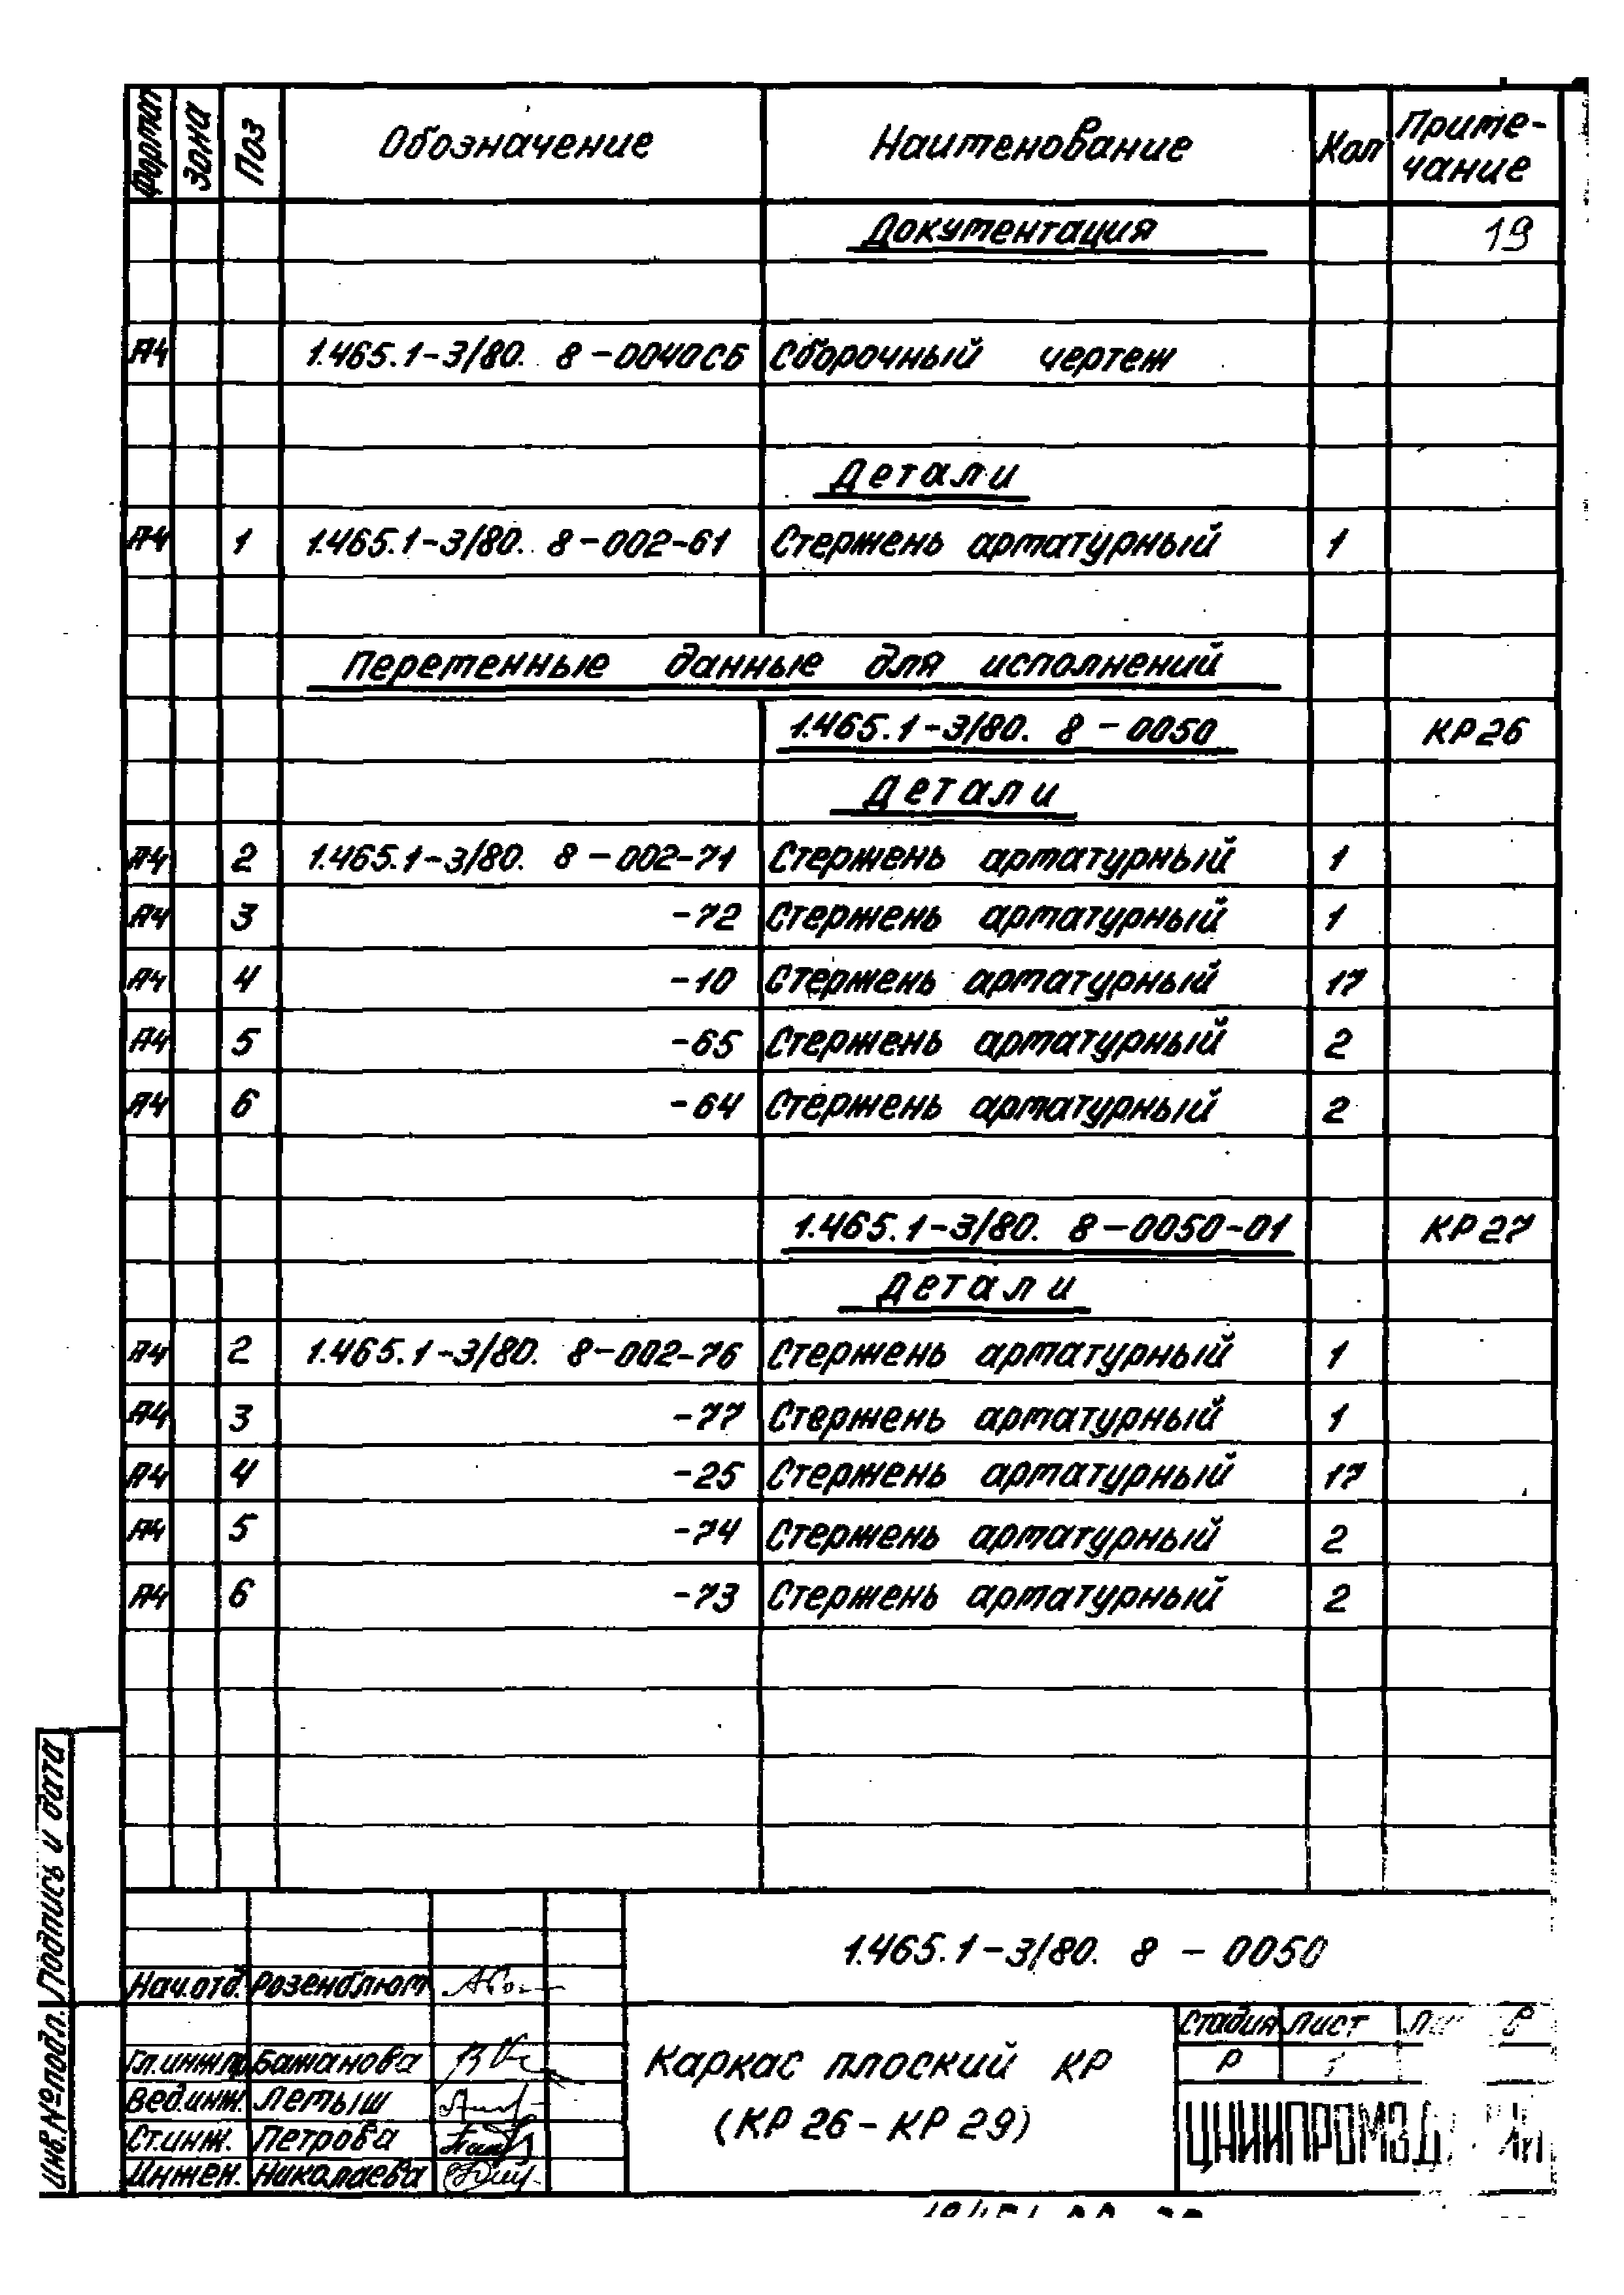 Формат Зона Поз Обозначение Наименование Кол Приме-
чание
Документация 19
А4 1.465.1-3/80. 8-0040СБ Сборочный чертеж
Детали
А4 1 1.465.1-3/80. 8-002-61 Стержень арматурный 1
Переменные данные для исполнений
1.465.1-3/80. 8-0050 КР26
Детали
А4 2 1.465.1-3/80. 8-002-71 Стержень арматурный 1
А4 3 -72 Стержень арматурный 1
А4 4 -10 Стержень арматурный 17
А4 5 -65 Стержень арматурный 2
А4 6 -64 Стержень арматурный 2
1.465.1-3/80. 8-0050-01 КР27
Детали
А4 2 1.465.1-3/80. 8-002-76 Стержень арматурный 1
А4 3 -77 Стержень арматурный 1
А4 4 -25 Стержень арматурный 17
А4 5 -74 Стержень арматурный 2
А4 6 -73 Стержень арматурный 2
Подпись и дата
Инв.№подл.
1.465.1-3/80. 8-0050
Нач.отд. Розенблюм
Гл.инж.пр. Бажанова
Вед.инж. Летыш
Ст.инж. Петрова
Инжен. Николаева
Каркас плоский КР
(КР26-КР29)
Стадия Лист
Р